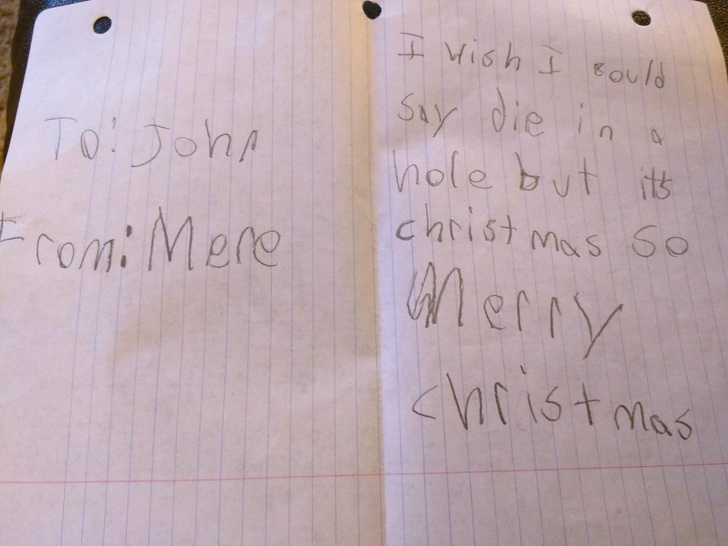 To: John
From: Mere
I wish I could
say die in a
hole but its
christmas so
Merry
christmas